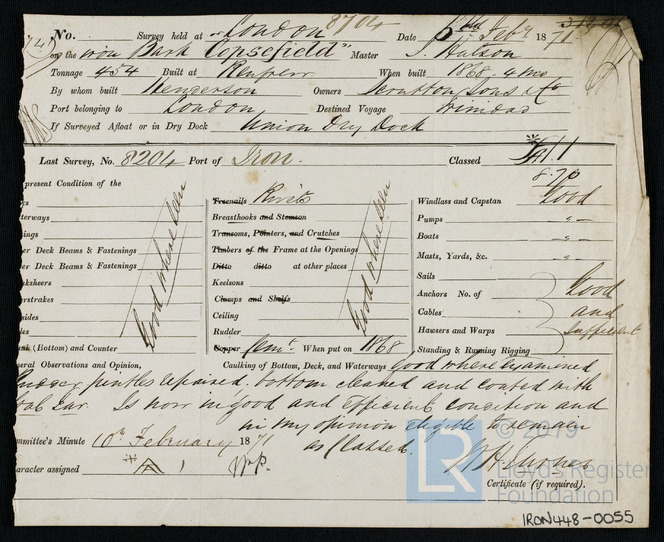 No. Survey held at London 8704 Date 6th Feby 1871
on the iron Bark "Copsefield" Master J. Hatson
Tonnage 454 Built at Renfrew When built 1868 - 4 mo
By whom built Henderson Owners Scrutton, Sons & Co
Port belonging to London Destined Voyage Trinidad
If Surveyed Afloat or in Dry Dock Union Dry Dock
Last Survey, No. 8204 Port of Iron. Classed A 1
8.70
present Condition of the Treenails Rivets Windlass and Capstan Good
Breasthooks and Stemson Pumps " -
aterways Transoms, Pointers, and Crutches Boats " -
ings Timbers of the Frame at the Openings Masts, Yards, &c. " -
er Deck Beams & Fastenings Ditto ditto at other places Sails
er Deck Beams & Fastenings Keelsons Anchors No. of Good
cksheers Clamps and Shelfs Cables and
erstrakes Ceiling Hawsers and Warps Sufficient
sides Rudder Standing & Running Rigging
Good where seen
Good where seen
ank (Bottom) and Counter Copper Cemt. When put on 1868
eral Observations and Opinion, Caulking of Bottom, Deck, and Waterways Good where examined
Rudder pintles repaired, bottom cleaned and coated with
Coal Tar. Is now in good and efficient condition and
in my opinion eligible to remain
ommittee's Minute 10th February 1871 as Classed.
aracter assigned A 1
Certificate (if required).
LR © 2019
Lloyd's Register
Foundation
IRON448-0055